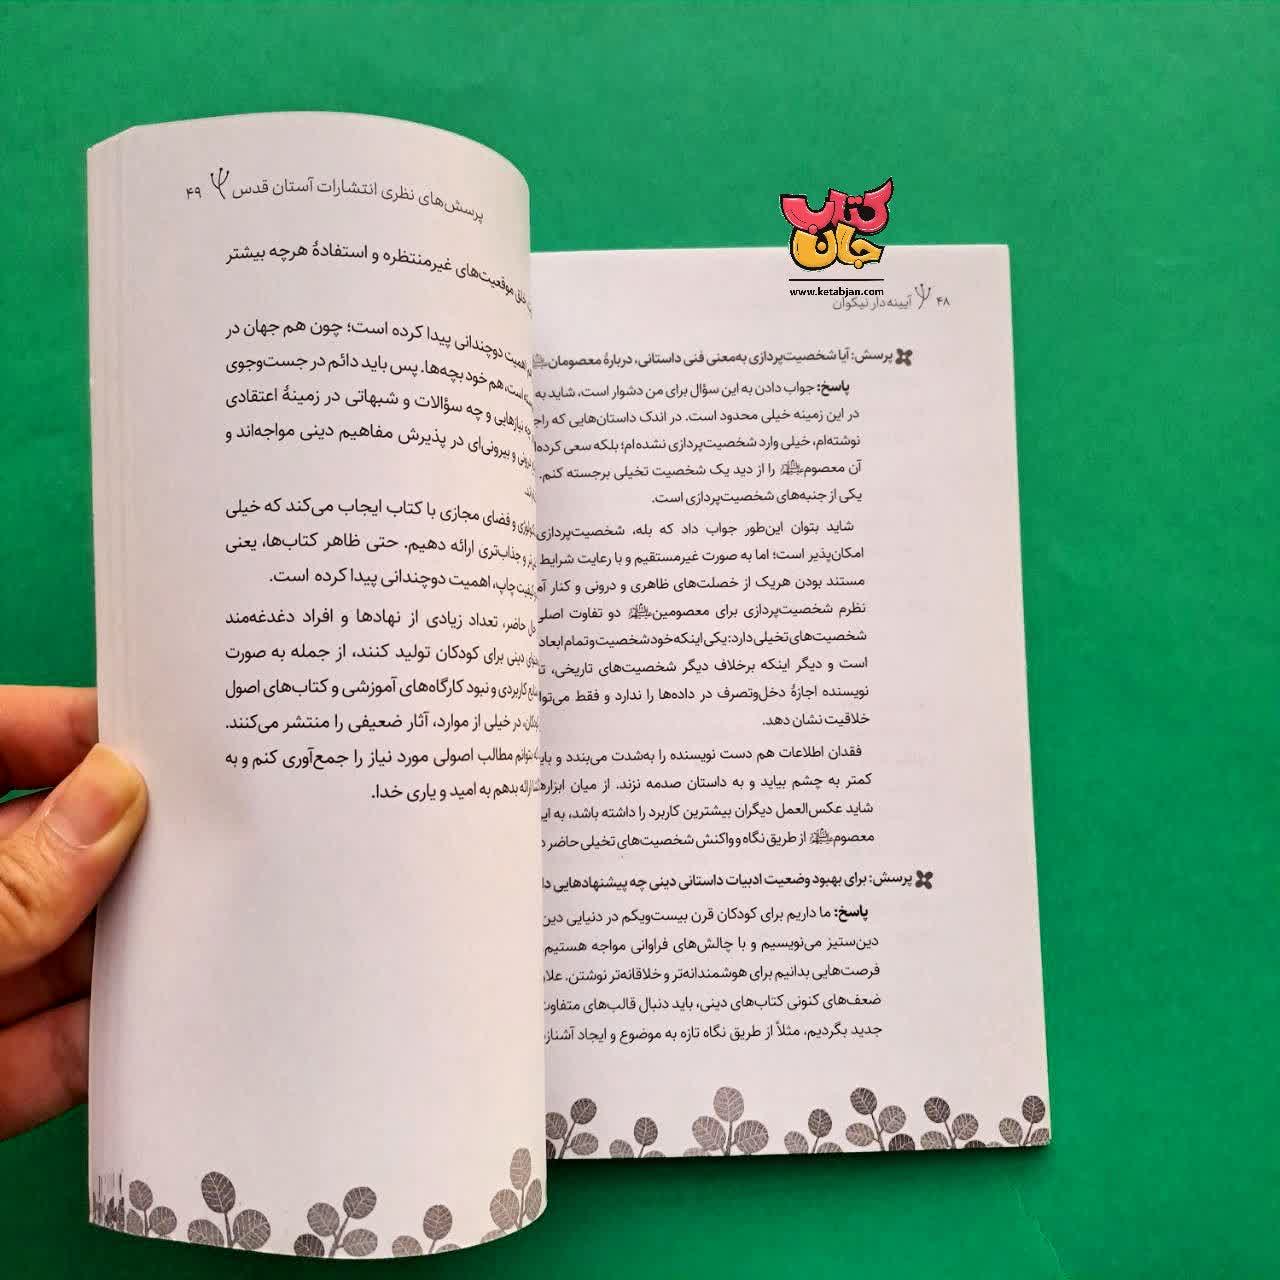 کتاب
جان
www.ketabjan.com
۴۸ آیینه‌دار نیکوان
پرسش: آیا شخصیت‌پردازی به‌معنی فنی داستانی، دربارهٔ معصومان
پاسخ: جواب دادن به این سؤال برای من دشوار است، شاید به
در این زمینه خیلی محدود است. در اندک داستان‌هایی که راجع
نوشته‌ام، خیلی وارد شخصیت‌پردازی نشده‌ام؛ بلکه سعی کرده‌ام
آن معصوم را از دید یک شخصیت تخیلی برجسته کنم.
یکی از جنبه‌های شخصیت‌پردازی است.
شاید بتوان این‌طور جواب داد که بله، شخصیت‌پردازی
امکان‌پذیر است؛ اما به صورت غیرمستقیم و با رعایت شرایط
مستند بودن هریک از خصلت‌های ظاهری و درونی و کنار
نظرم شخصیت‌پردازی برای معصومین دو تفاوت اصلی
شخصیت‌های تخیلی دارد: یکی اینکه خود شخصیت و تمام ابعاد
است و دیگر اینکه برخلاف دیگر شخصیت‌های تاریخی،
نویسنده اجازهٔ دخل‌وتصرف در داده‌ها را ندارد و فقط
خلاقیت نشان دهد.
فقدان اطلاعات هم دست نویسنده را به‌شدت می‌بندد و
کمتر به چشم بیاید و به داستان صدمه نزند. از میان
شاید عکس‌العمل دیگران بیشترین کاربرد را داشته باشد، به
معصوم از طریق نگاه و واکنش شخصیت‌های تخیلی حاضر
پرسش: برای بهبود وضعیت ادبیات داستانی دینی چه پیشنهادهایی
پاسخ: ما داریم برای کودکان قرن بیست‌ویکم در دنیایی
دین‌ستیز می‌نویسیم و با چالش‌های فراوانی مواجه هستیم
فرصت‌هایی بدانیم برای هوشمندانه‌تر و خلاقانه‌تر نوشتن.
ضعف‌های کنونی کتاب‌های دینی، باید دنبال قالب‌های متفاوت
جدید بگردیم، مثلاً از طریق نگاه تازه به موضوع و ایجاد
پرسش‌های نظری انتشارات آستان قدس ۴۹
خلق موقعیت‌های غیرمنتظره و استفادهٔ هرچه بیشتر
اهمیت دوچندانی پیدا کرده است؛ چون هم جهان در
است، هم خود بچه‌ها. پس باید دائم در جست‌وجوی
چه نیازهایی و چه سؤالات و شبهاتی در زمینهٔ اعتقادی
درونی و بیرونی‌ای در پذیرش مفاهیم دینی مواجه‌اند و
و فضای مجازی با کتاب ایجاب می‌کند که خیلی
و جذاب‌تری ارائه دهیم. حتی ظاهر کتاب‌ها، یعنی
کیفیت چاپ، اهمیت دوچندانی پیدا کرده است.
حال حاضر، تعداد زیادی از نهادها و افراد دغدغه‌مند
دینی برای کودکان تولید کنند، از جمله به صورت
منابع کاربردی و نبود کارگاه‌های آموزشی و کتاب‌های اصول
در خیلی از موارد، آثار ضعیفی را منتشر می‌کنند.
بتوانم مطالب اصولی مورد نیاز را جمع‌آوری کنم و به
ارائه بدهم به امید و یاری خدا.